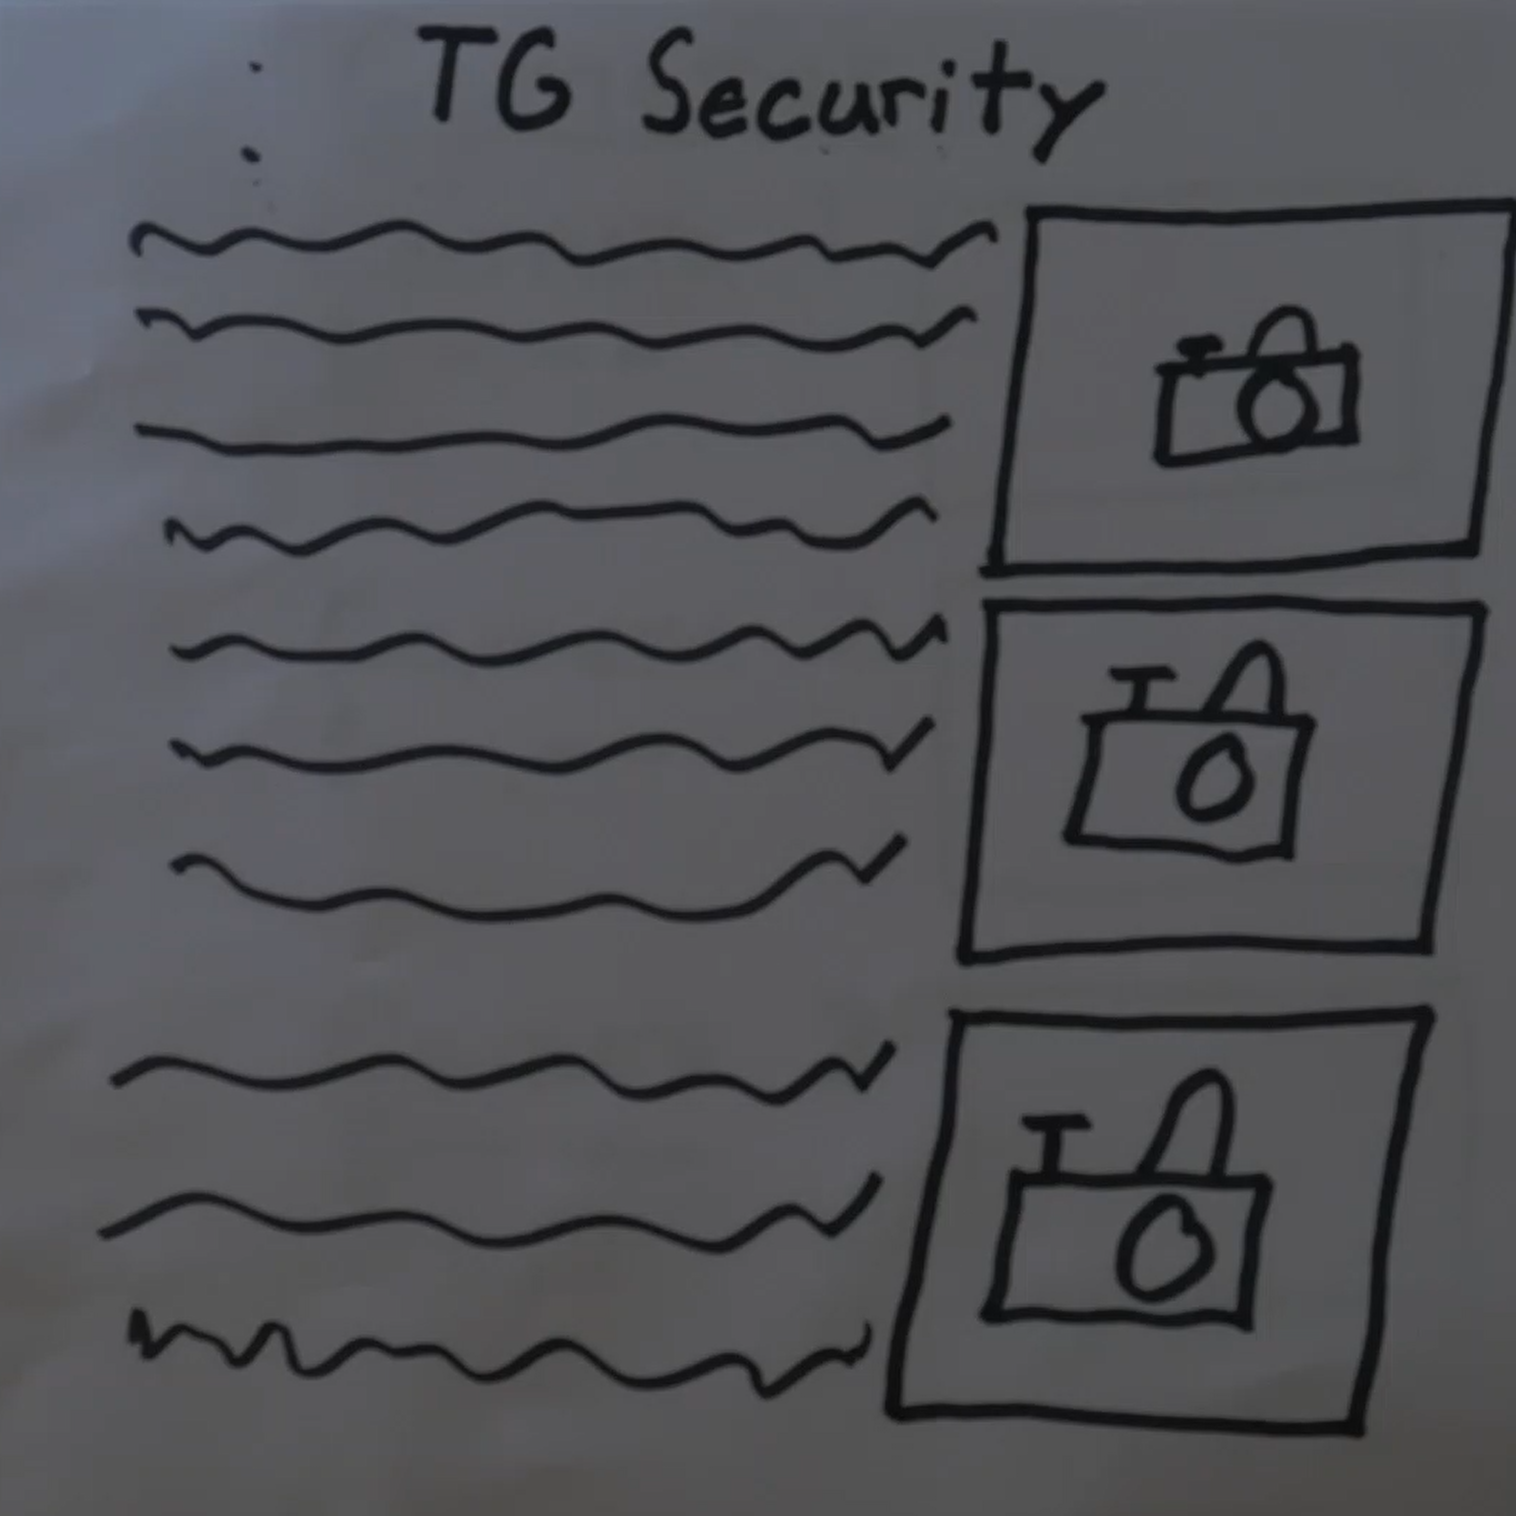 TG Security